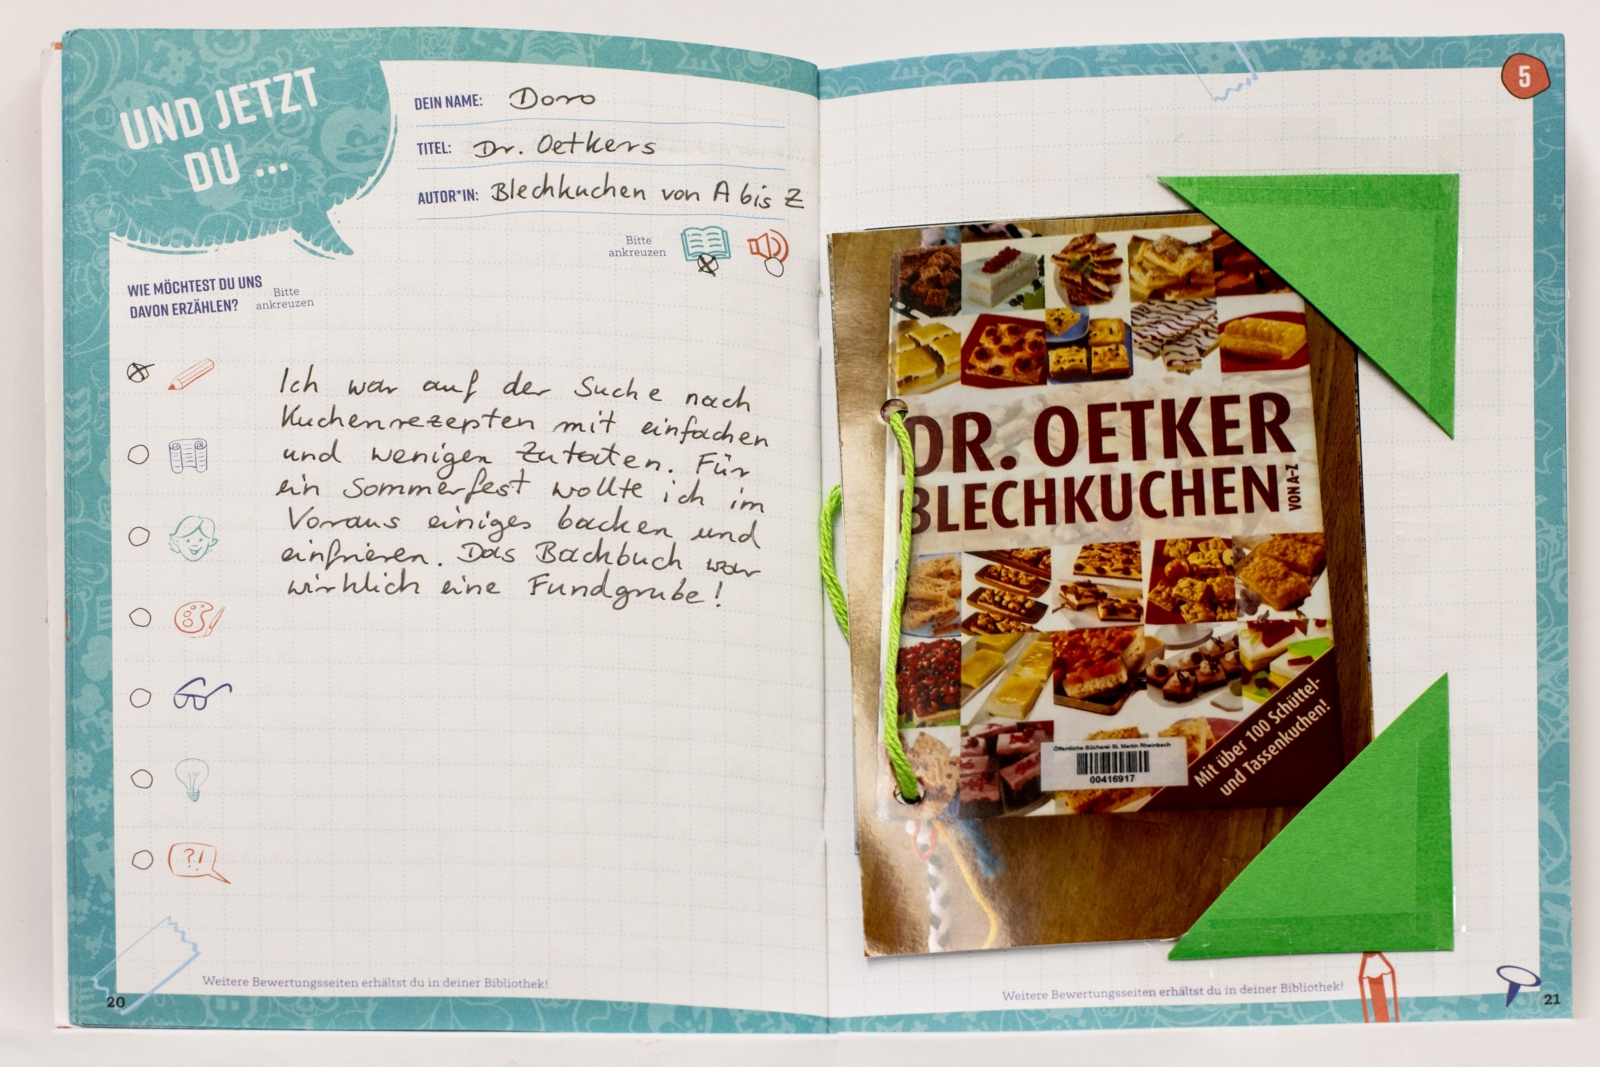 UND JETZT
DU ...
DEIN NAME: Doro
TITEL: Dr. Oetkers
AUTOR*IN: Blechkuchen von A bis Z
Bitte
ankreuzen
WIE MÖCHTEST DU UNS
DAVON ERZÄHLEN?
Bitte
ankreuzen
Ich war auf der Suche nach
Kuchenrezepten mit einfachen
und wenigen Zutaten. Für
ein Sommerfest wollte ich im
Voraus einiges backen und
einfrieren. Das Backbuch war
wirklich eine Fundgrube!
?!
Weitere Bewertungsseiten erhältst du in deiner Bibliothek!
20
5
DR. OETKER
BLECHKUCHEN
VON A-Z
Mit über 100 Schüttel-
und Tassenkuchen!
Öffentliche Bücherei St. Martin Rheinbach
00416917
Weitere Bewertungsseiten erhältst du in deiner Bibliothek!
21